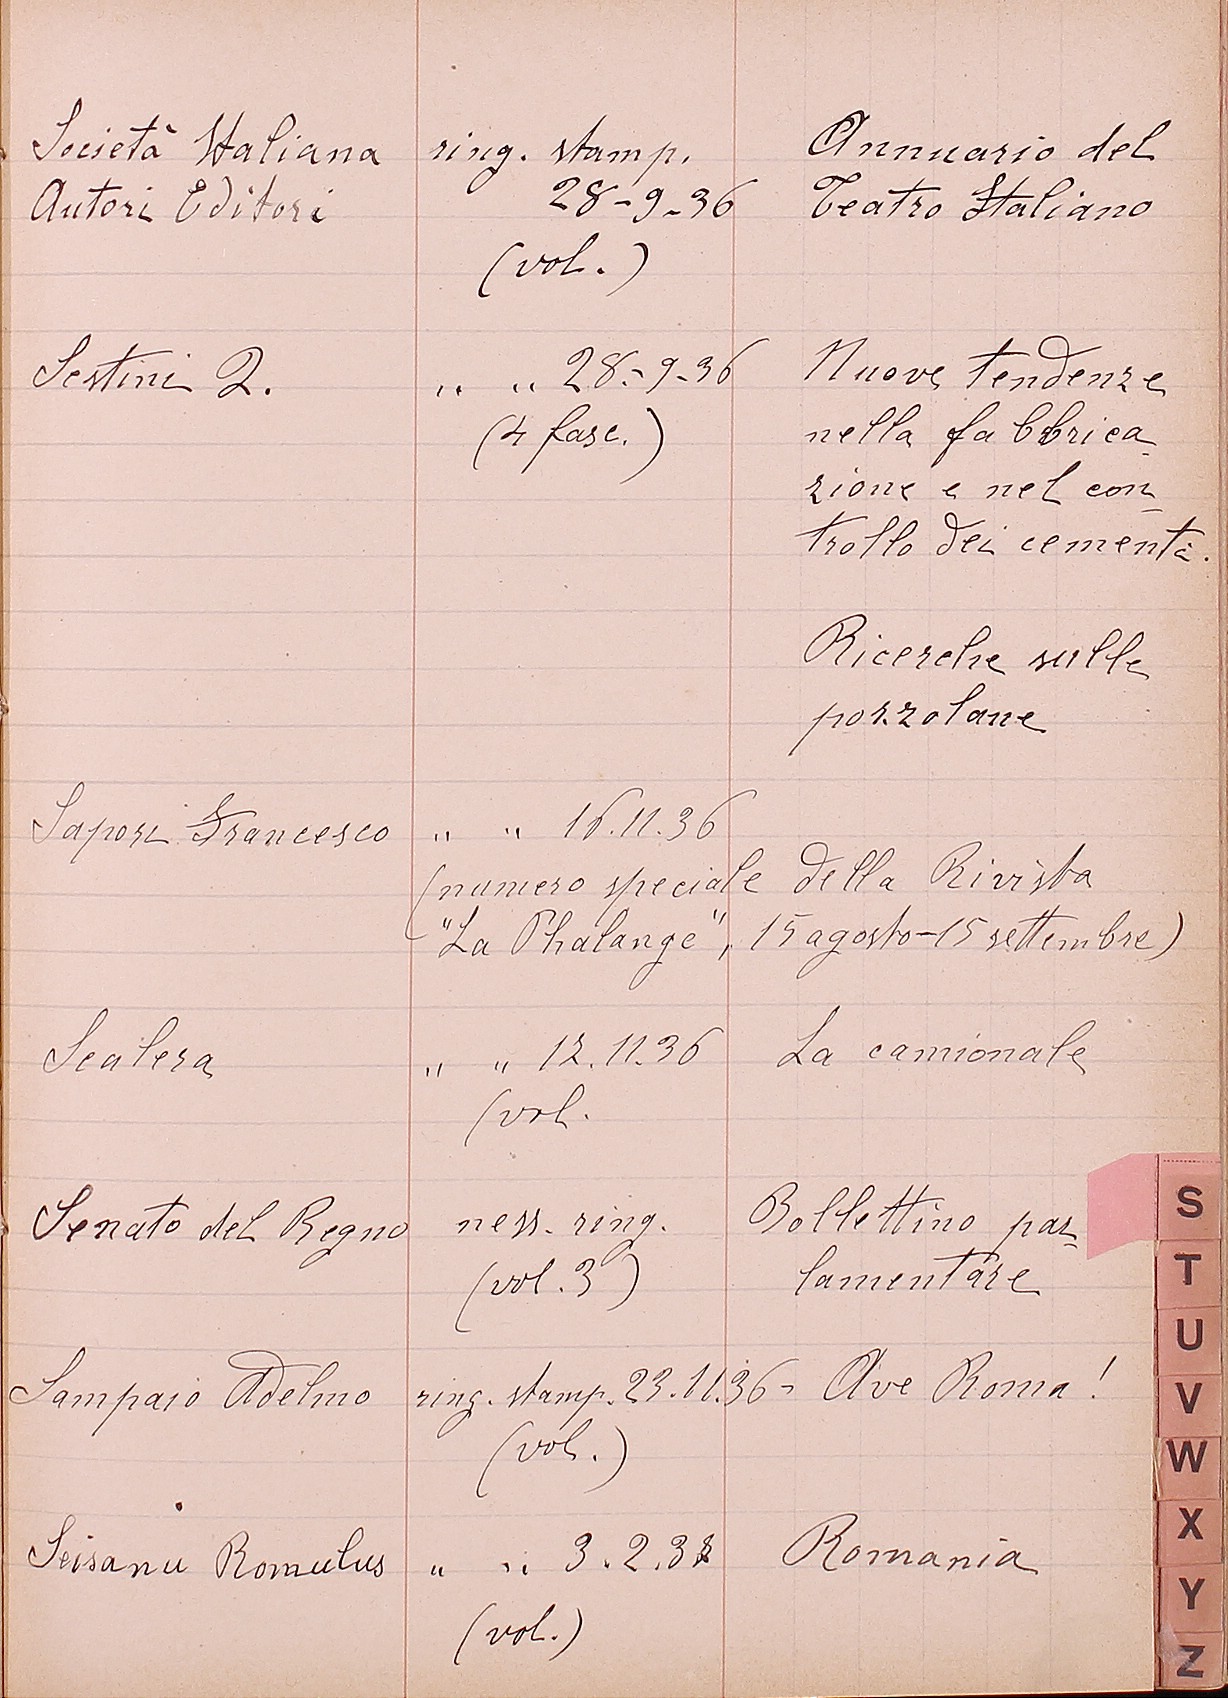 Società Italiana ring. stamp. Annuario del
Autori Editori 28-9-36 Teatro Italiano
(vol.)
Sestini Q. " " 28-9-36 Nuove tendenze
(4 fasc.) nella fabbrica-
zione e nel con-
trollo dei cementi.
Ricerche sulle
pozzolane
Sapori Francesco " " 16.11.36
(numero speciale della Rivista
"La Phalange", 15 agosto-15 settembre)
Scalera " " 12.11.36 La camionale
(vol.
Senato del Regno ness. ring. Bollettino par-
(vol. 3) lamentare
Sampaio Adelmo ring. stamp. 23.11.36- Ave Roma!
(vol.)
Seisanu Romulus " " 3.2.38 Romania
(vol.)
S
T
U
V
W
X
Y
Z